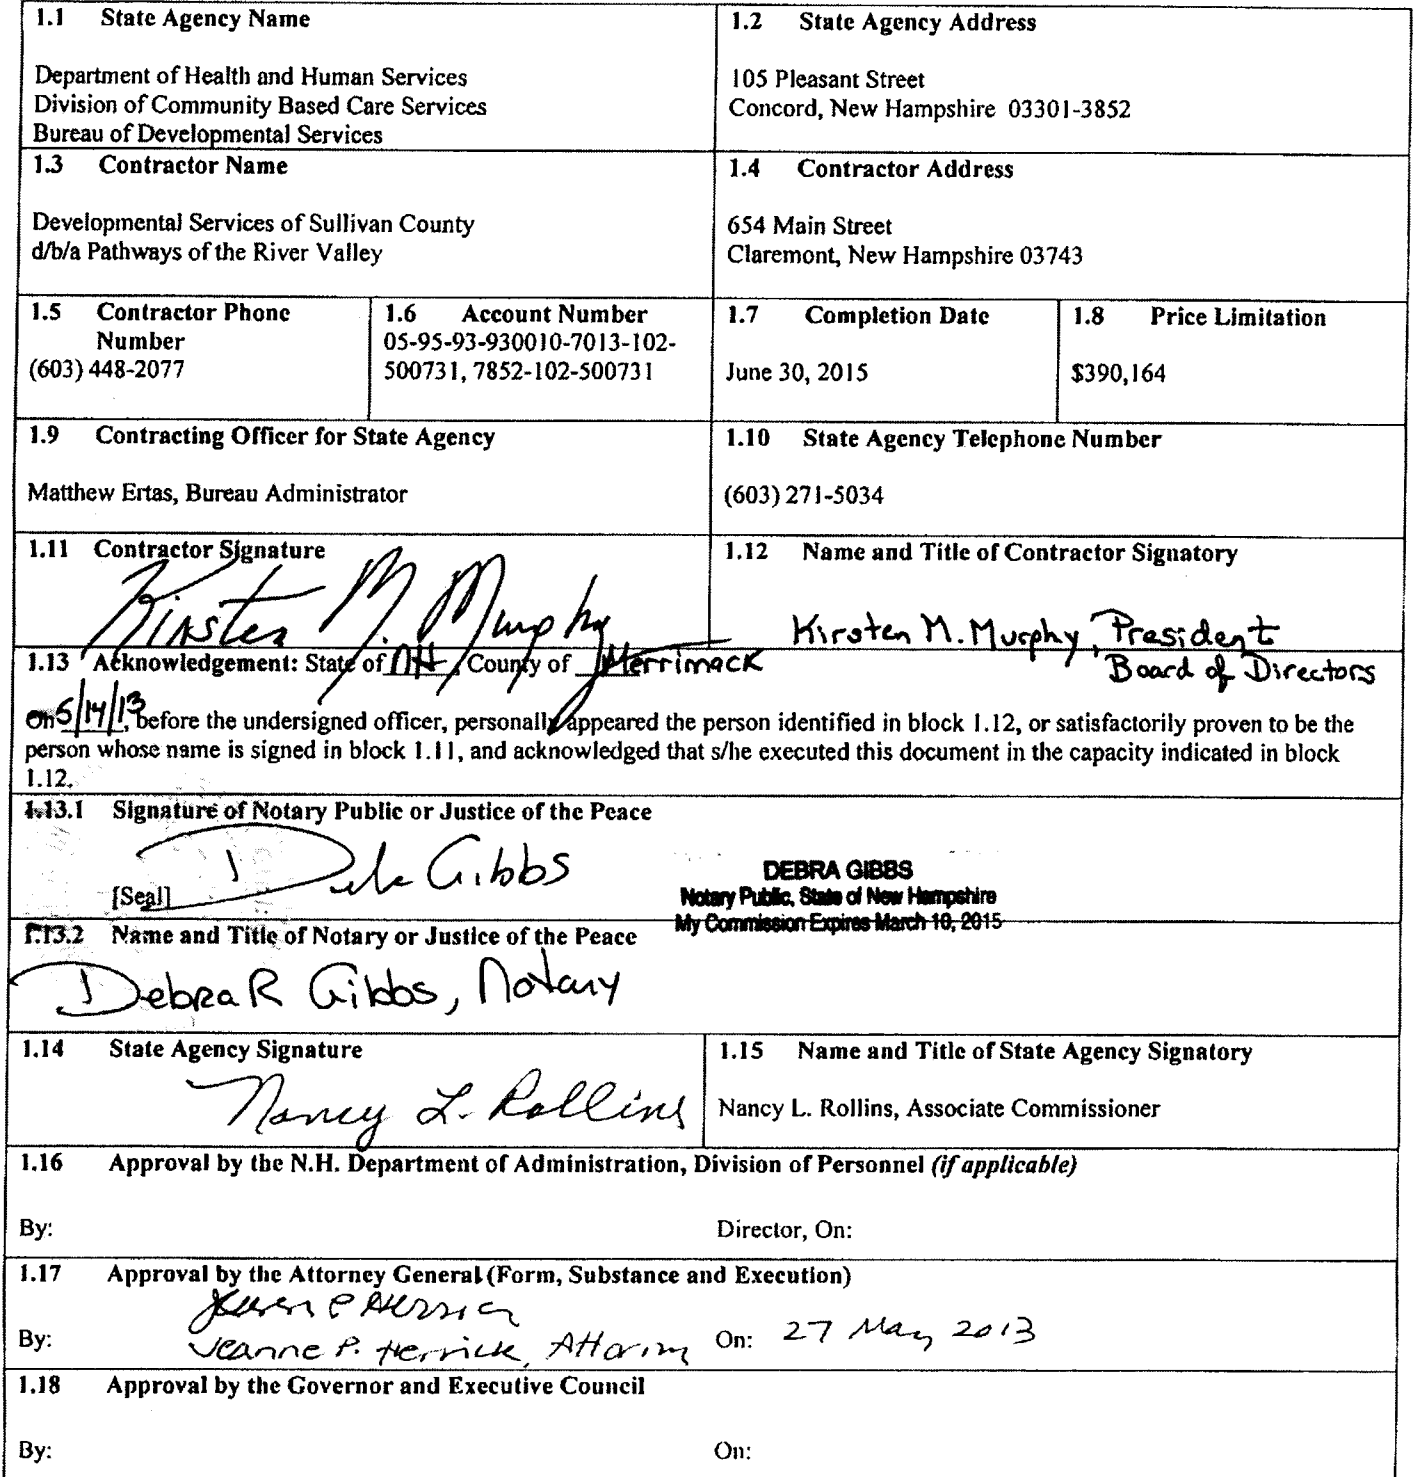 1.1 State Agency Name
Department of Health and Human Services
Division of Community Based Care Services
Bureau of Developmental Services
1.2 State Agency Address
105 Pleasant Street
Concord, New Hampshire 03301-3852
1.3 Contractor Name
Developmental Services of Sullivan County
d/b/a Pathways of the River Valley
1.4 Contractor Address
654 Main Street
Claremont, New Hampshire 03743
1.5 Contractor Phone
Number
(603) 448-2077
1.6 Account Number
05-95-93-930010-7013-102-
500731, 7852-102-500731
1.7 Completion Date
June 30, 2015
1.8 Price Limitation
$390,164
1.9 Contracting Officer for State Agency
Matthew Ertas, Bureau Administrator
1.10 State Agency Telephone Number
(603) 271-5034
1.11 Contractor Signature
Kirsten M. Murphy
1.12 Name and Title of Contractor Signatory
Kirsten M. Murphy, President
Board of Directors
1.13 Acknowledgement: State of NH, County of Merrimack
On 5/14/13, before the undersigned officer, personally appeared the person identified in block 1.12, or satisfactorily proven to be the
person whose name is signed in block 1.11, and acknowledged that s/he executed this document in the capacity indicated in block
1.12.
1.13.1 Signature of Notary Public or Justice of the Peace
Gibbs
[Seal]
DEBRA GIBBS
Notary Public, State of New Hampshire
My Commission Expires March 10, 2015
1.13.2 Name and Title of Notary or Justice of the Peace
Debra R Gibbs, Notary
1.14 State Agency Signature
Nancy L. Rollins
1.15 Name and Title of State Agency Signatory
Nancy L. Rollins, Associate Commissioner
1.16 Approval by the N.H. Department of Administration, Division of Personnel (if applicable)
By:
Director, On:
1.17 Approval by the Attorney General (Form, Substance and Execution)
By: Jeanne P. Herrick, Attorney On: 27 May 2013
1.18 Approval by the Governor and Executive Council
By:
On: